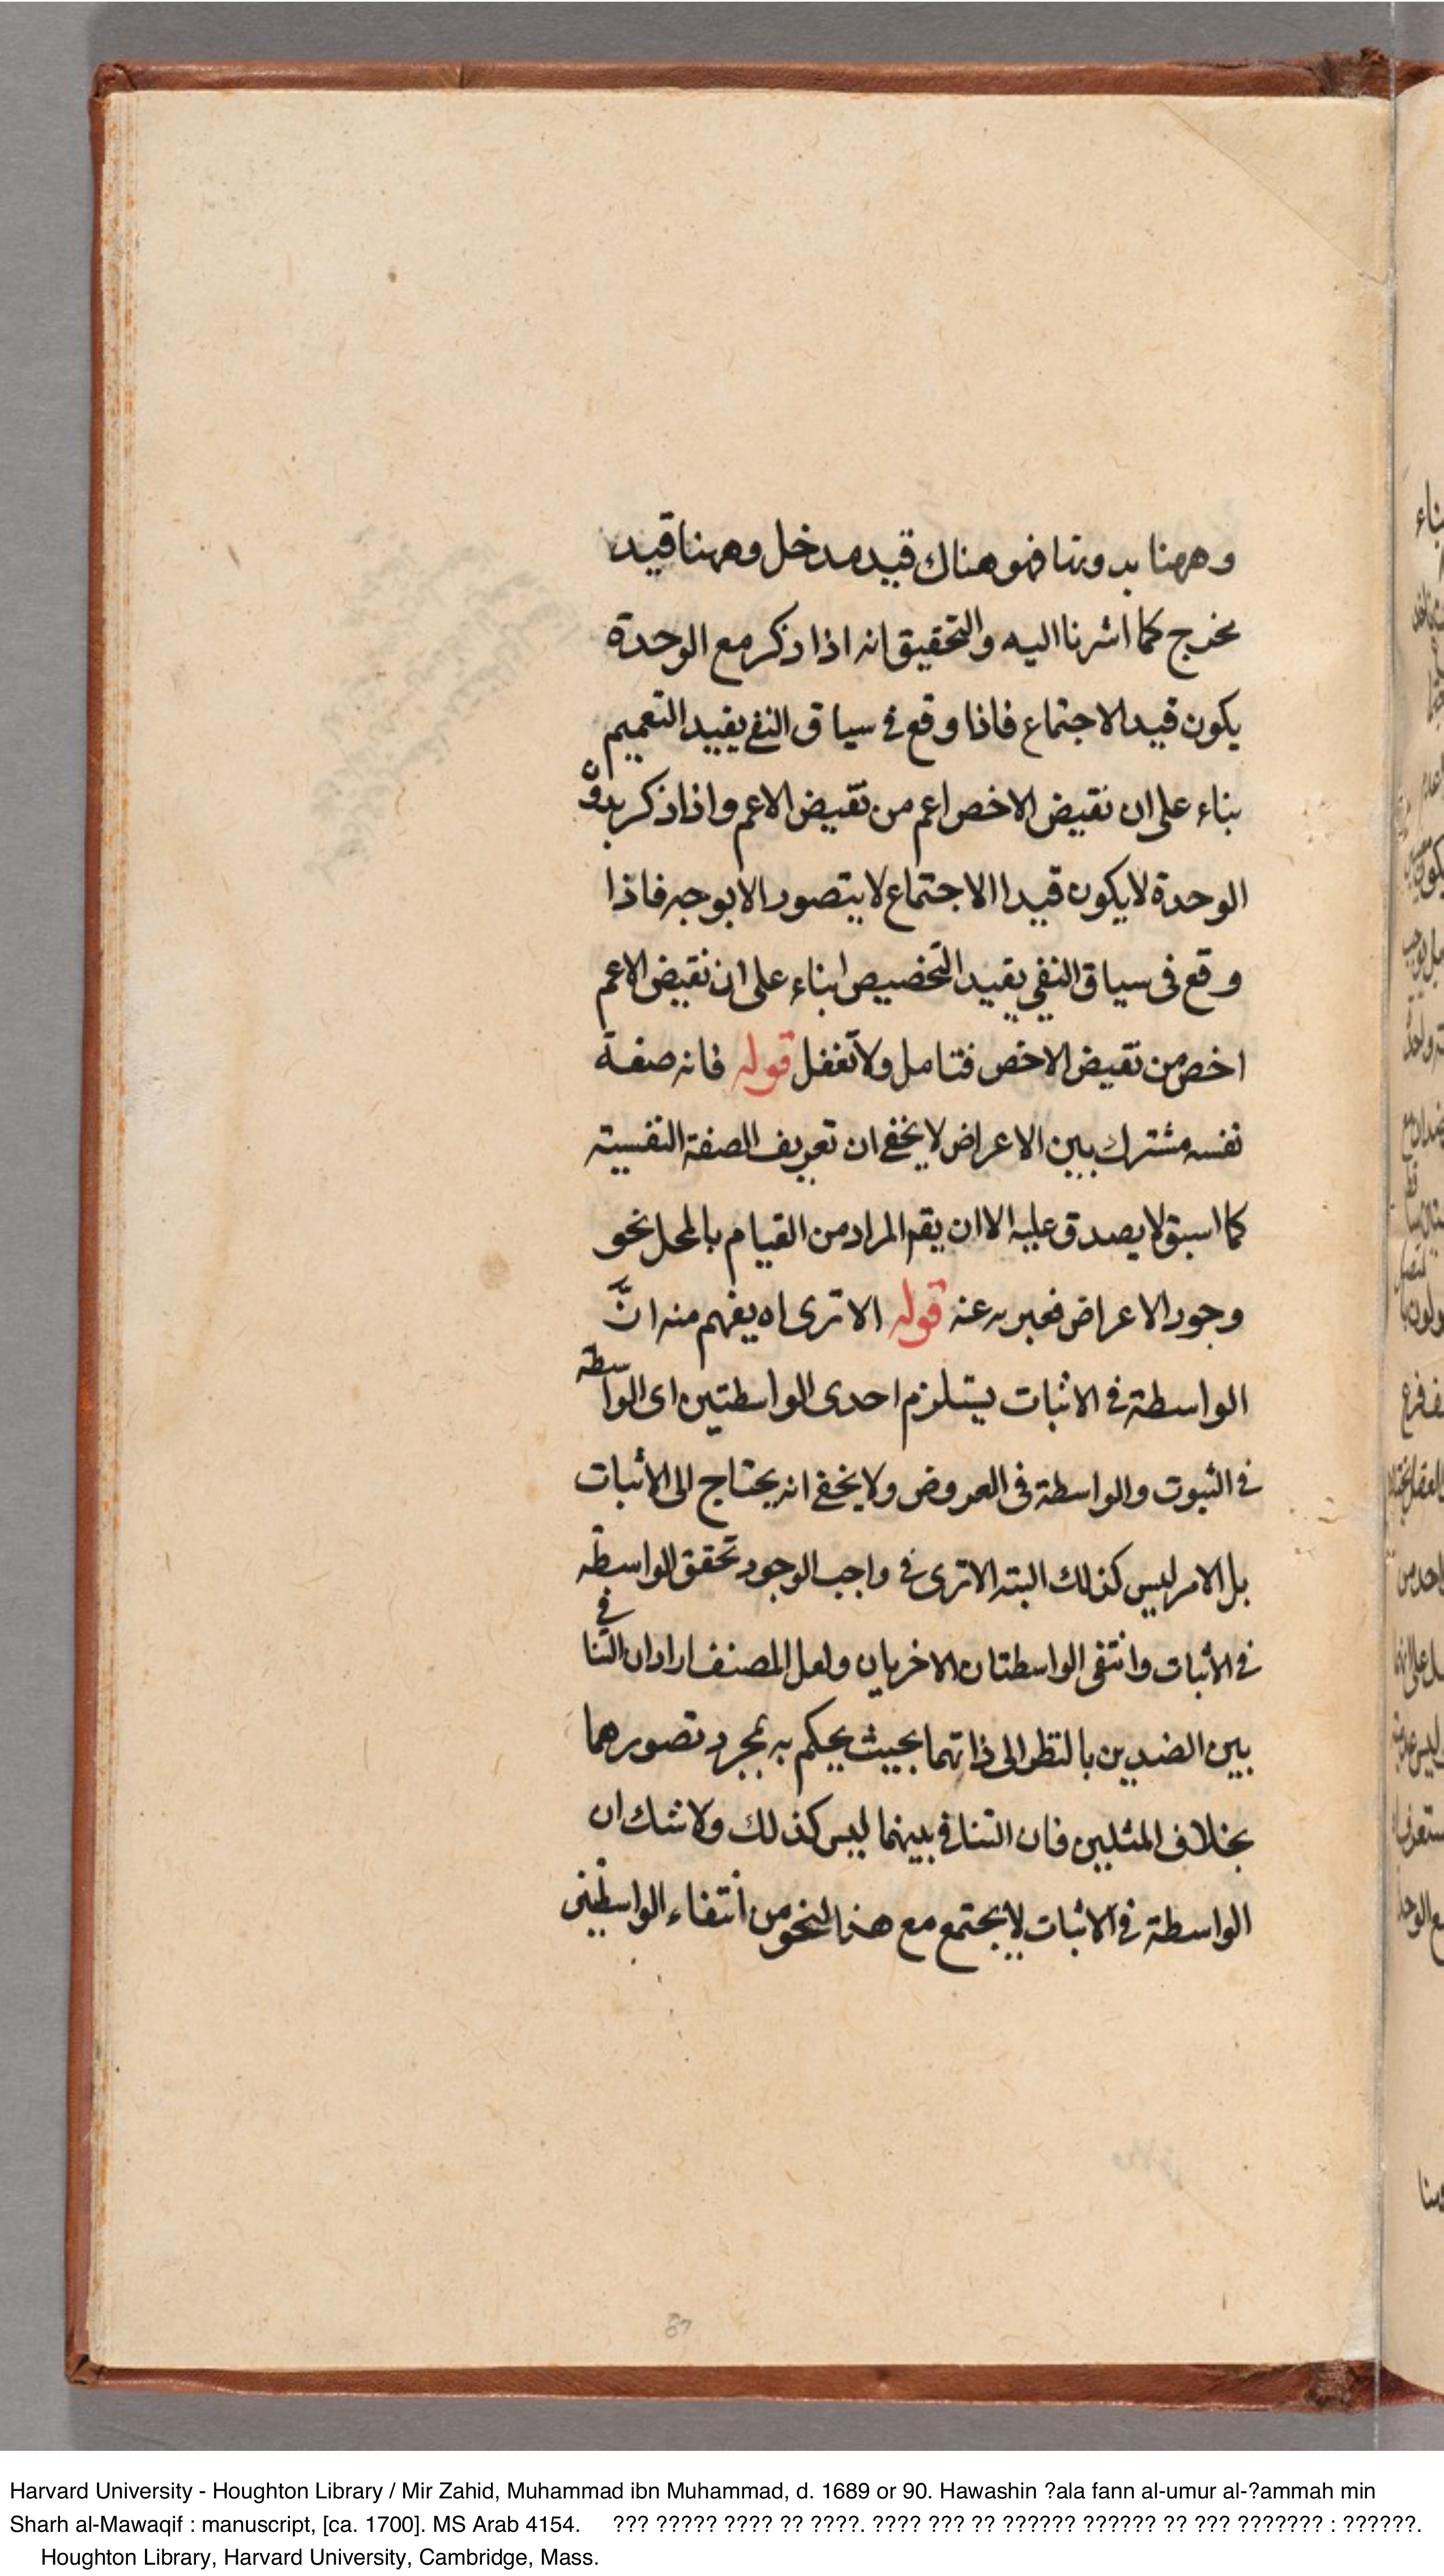 وههنا بدونها فهو هناك قيد مدخل وههنا قيد
مخرج كما اشرنا اليه والتحقيق انه اذا ذكر مع الوحدة
يكون قيد الاجتماع فاذا وقع في سياق النفي يفيد التعميم
بناء على ان نقيض الاخص اعم من نقيض الاعم واذا ذكر بدون
الوحدة لا يكون قيدا الاجتماع لا يتصور الا بوجه فاذا
وقع في سياق النفي يفيد التخصيص ابناء على ان نقيض الاعم
اخص من نقيض الاخص فتامل ولا تغفل قوله فانه صفة
نفسه مشترك بين الاعراض لا يخفى ان تعريف الصفة النفسية
كما اسبق لا يصدق عليه الا ان يقم المراد من القيام بالمحل نحو
وجود الاعراض فعبر به عنه قوله الا ترى اه يفهم منه انّ
الواسطة في الاثبات يستلزم احدى الواسطتين اى الواسطة
في الثبوت والواسطة في العروض ولا يخفى انه يحتاج الى الاثبات
بل الامر ليس كذلك البته الا ترى في واجب الوجود تحقق الواسطة
في الاثبات وانتفى الواسطتان الاخريان ولعل المصنف اراد ان التنافي
بين الضدين بالنظر الى ذاتهما بحيث يحكم به بمجرد تصورهما
بخلاف المثلين فان التنافي بينهما ليس كذلك ولا شك ان
الواسطة في الاثبات لا يجتمع مع هذا النحو من انتفاء الواسطتين
87
Harvard University - Houghton Library / Mir Zahid, Muhammad ibn Muhammad, d. 1689 or 90. Hawashin ?ala fann al-umur al-?ammah min
Sharh al-Mawaqif : manuscript, [ca. 1700]. MS Arab 4154. ??? ????? ???? ?? ????. ???? ??? ?? ?????? ?????? ?? ??? ??????? : ??????.
Houghton Library, Harvard University, Cambridge, Mass.